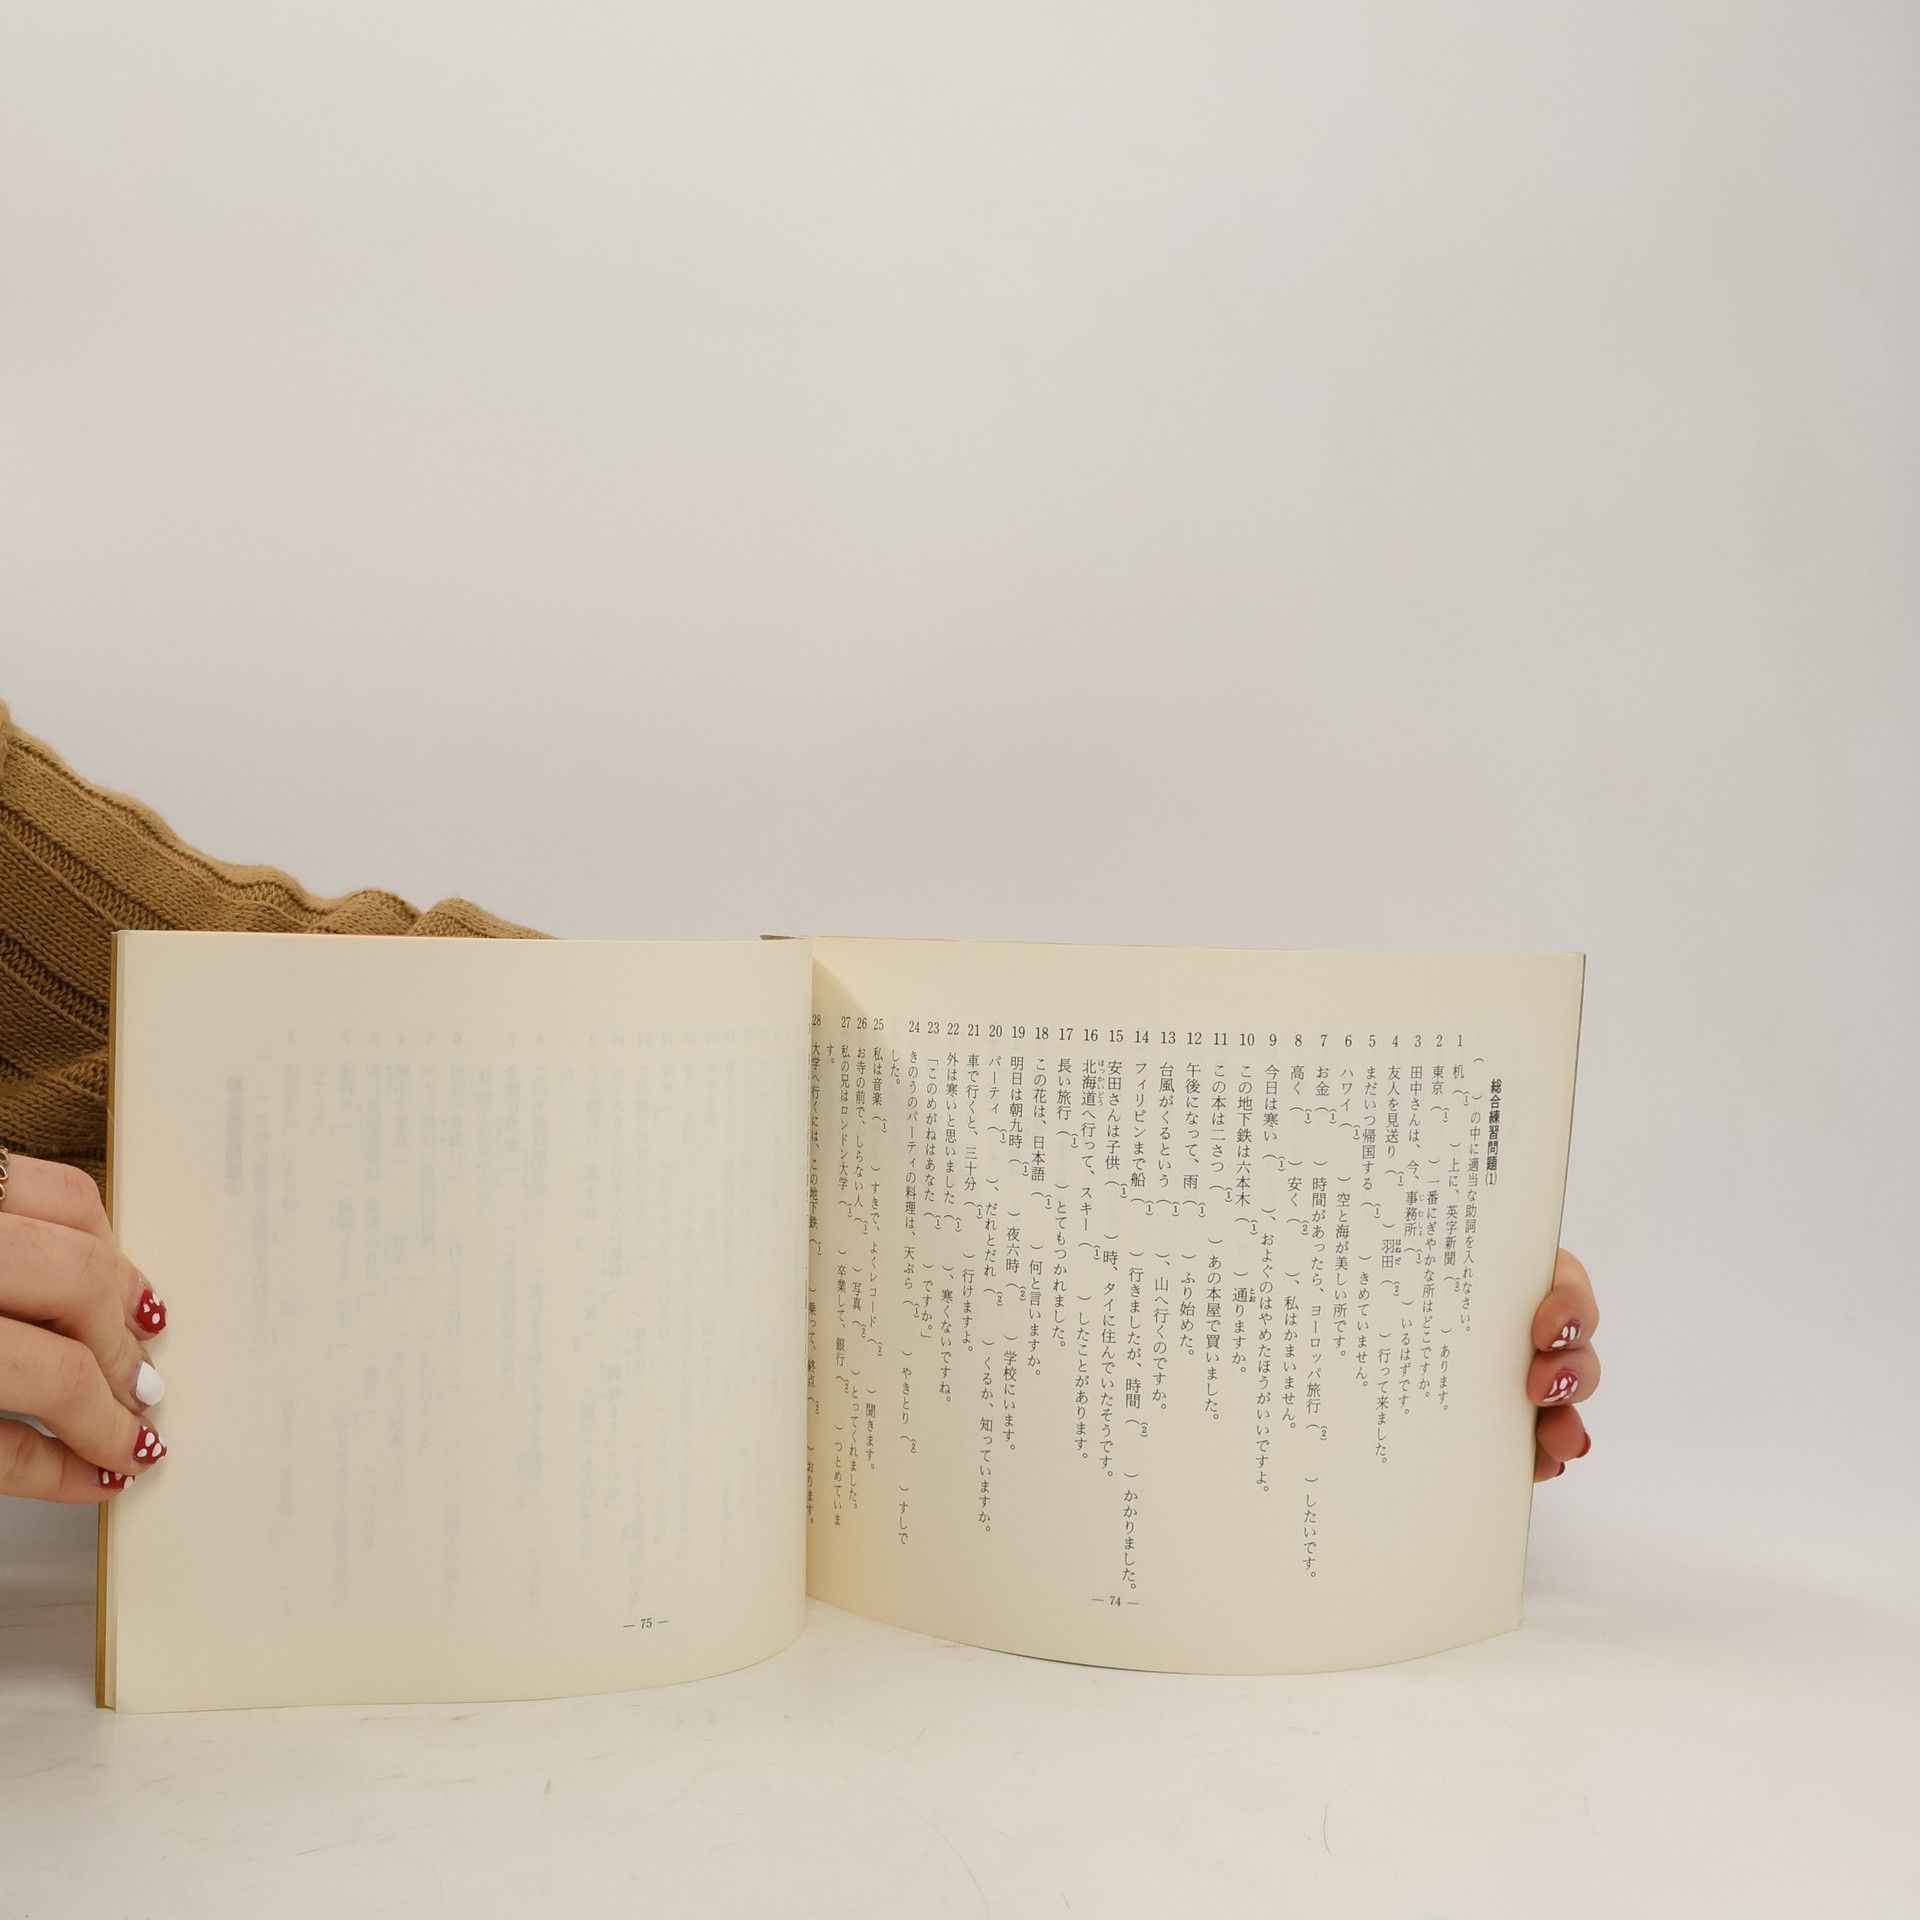 総合練習問題(1)
(　)の中に適当な助詞を入れなさい。
1 机((1)　)上に、英字新聞((2)　)あります。
2 東京((1)　)一番にぎやかな所はどこですか。
3 田中さんは、今、事務所((1)　)いるはずです。
4 友人を見送り((1)　)羽田((2)　)行って来ました。
5 まだいつ帰国する((1)　)きめていません。
6 ハワイ((1)　)空と海が美しい所です。
7 お金((1)　)時間があったら、ヨーロッパ旅行((2)　)したいです。
8 高く((1)　)安く((2)　)、私はかまいません。
9 今日は寒い((1)　)、およぐのはやめたほうがいいですよ。
10 この地下鉄は六本木((1)　)通りますか。
11 この本は二さつ((1)　)あの本屋で買いました。
12 午後になって、雨((1)　)ふり始めた。
13 台風がくるという((1)　)、山へ行くのですか。
14 フィリピンまで船((1)　)行きましたが、時間((2)　)かかりました。
15 安田さんは子供((1)　)時、タイに住んでいたそうです。
16 北海道へ行って、スキー((1)　)したことがあります。
17 長い旅行((1)　)とてもつかれました。
18 この花は、日本語((1)　)何と言いますか。
19 明日は朝九時((1)　)夜六時((2)　)学校にいます。
20 パーティ((1)　)、だれとだれ((2)　)くるか、知っていますか。
21 車で行くと、三十分((1)　)行けますよ。
22 外は寒いと思いました((1)　)、寒くないですね。
23 「このめがねはあなた((1)　)ですか。」
24 きのうのパーティの料理は、天ぷら((1)　)やきとり((2)　)すしで
した。
25 私は音楽((1)　)すきで、よくレコード((2)　)聞きます。
26 お寺の前で、しらない人((1)　)写真((2)　)とってくれました。
27 私の兄はロンドン大学((1)　)卒業して、銀行((2)　)つとめていま
す。
28 大学へ行くには、この地下鉄((1)　)乗って、終点((2)　)おります。
— 74 —
— 75 —